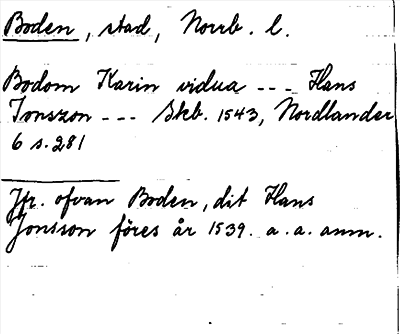 Boden, stad, Norrb. l.
Bodom Karin vidua --- Hans
Jonszon --- Skb. 1543, Nordlander
6 s. 281
Jfr. ofvan Boden, dit Hans
Jonsson föres år 1539. a. a. anm.